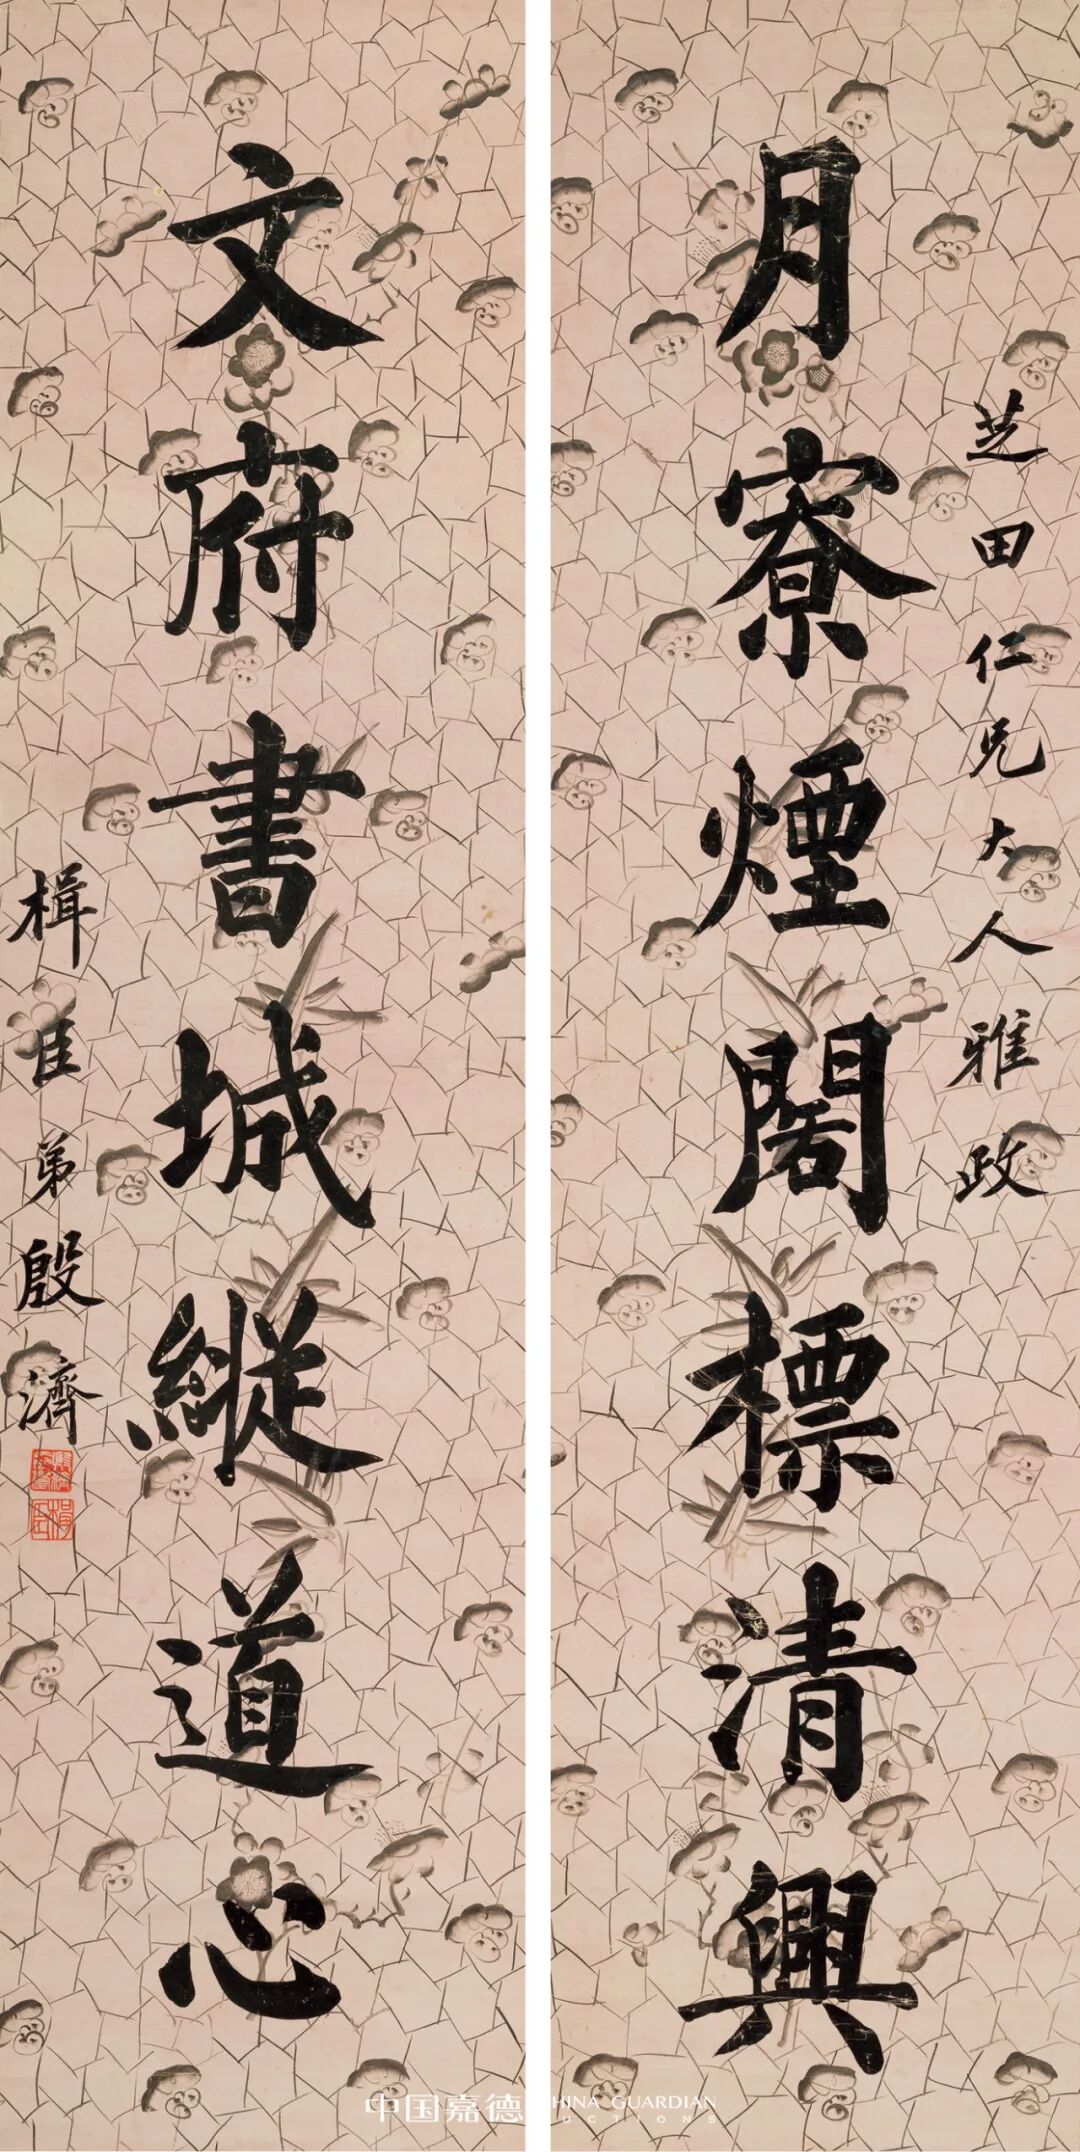 芝田仁兄大人雅政
月寮煙閣標清興
文府書城縱道心
楫臣弟殷濟
中国嘉德
HINA GUARDIAN
UCTIONS